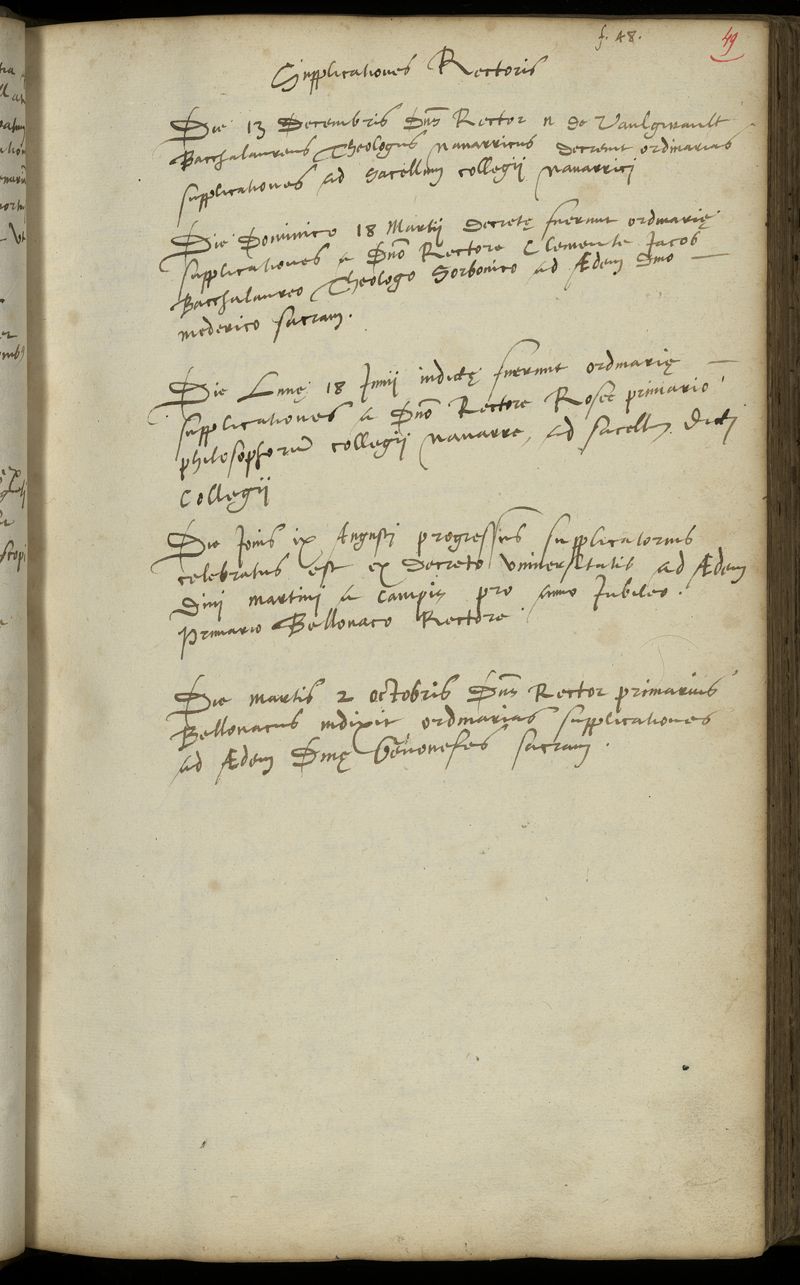 f. 48.
49
Supplicationes Rectoris
Die 13 Decembris Dns Rector n de Vaulgirault
Bacchalaureus Theologus navarricus decrevit ordinarias
supplicationes ad Sacellum collegii navarrici
Die Dominico 18 Martij decretę fuerunt ordinarię
supplicationes a Dno Rectore Clemente Jacob
Bacchalaureo Theologo Sorbonico ad Ædem divo
mederico sacram.
Die Lunę 18 Junij indictę fuerunt ordinarię
supplicationes a Dno Rectore Rosee primario
philosophorū collegij navarre, ad sacellū dicti
Collegij
Die Jovis ix Augusti progressus supplicatorius
celebratus est ex decreto universitatis ad Ædem
Divi martini a campis pro anno Jubileo.
Primario Bellovaco Rectore
Die martis 2 octobris Dns Rector primarius
Bellovacus indixit ordinarias supplicationes
ad Ædem Divę Genovefes sacram.